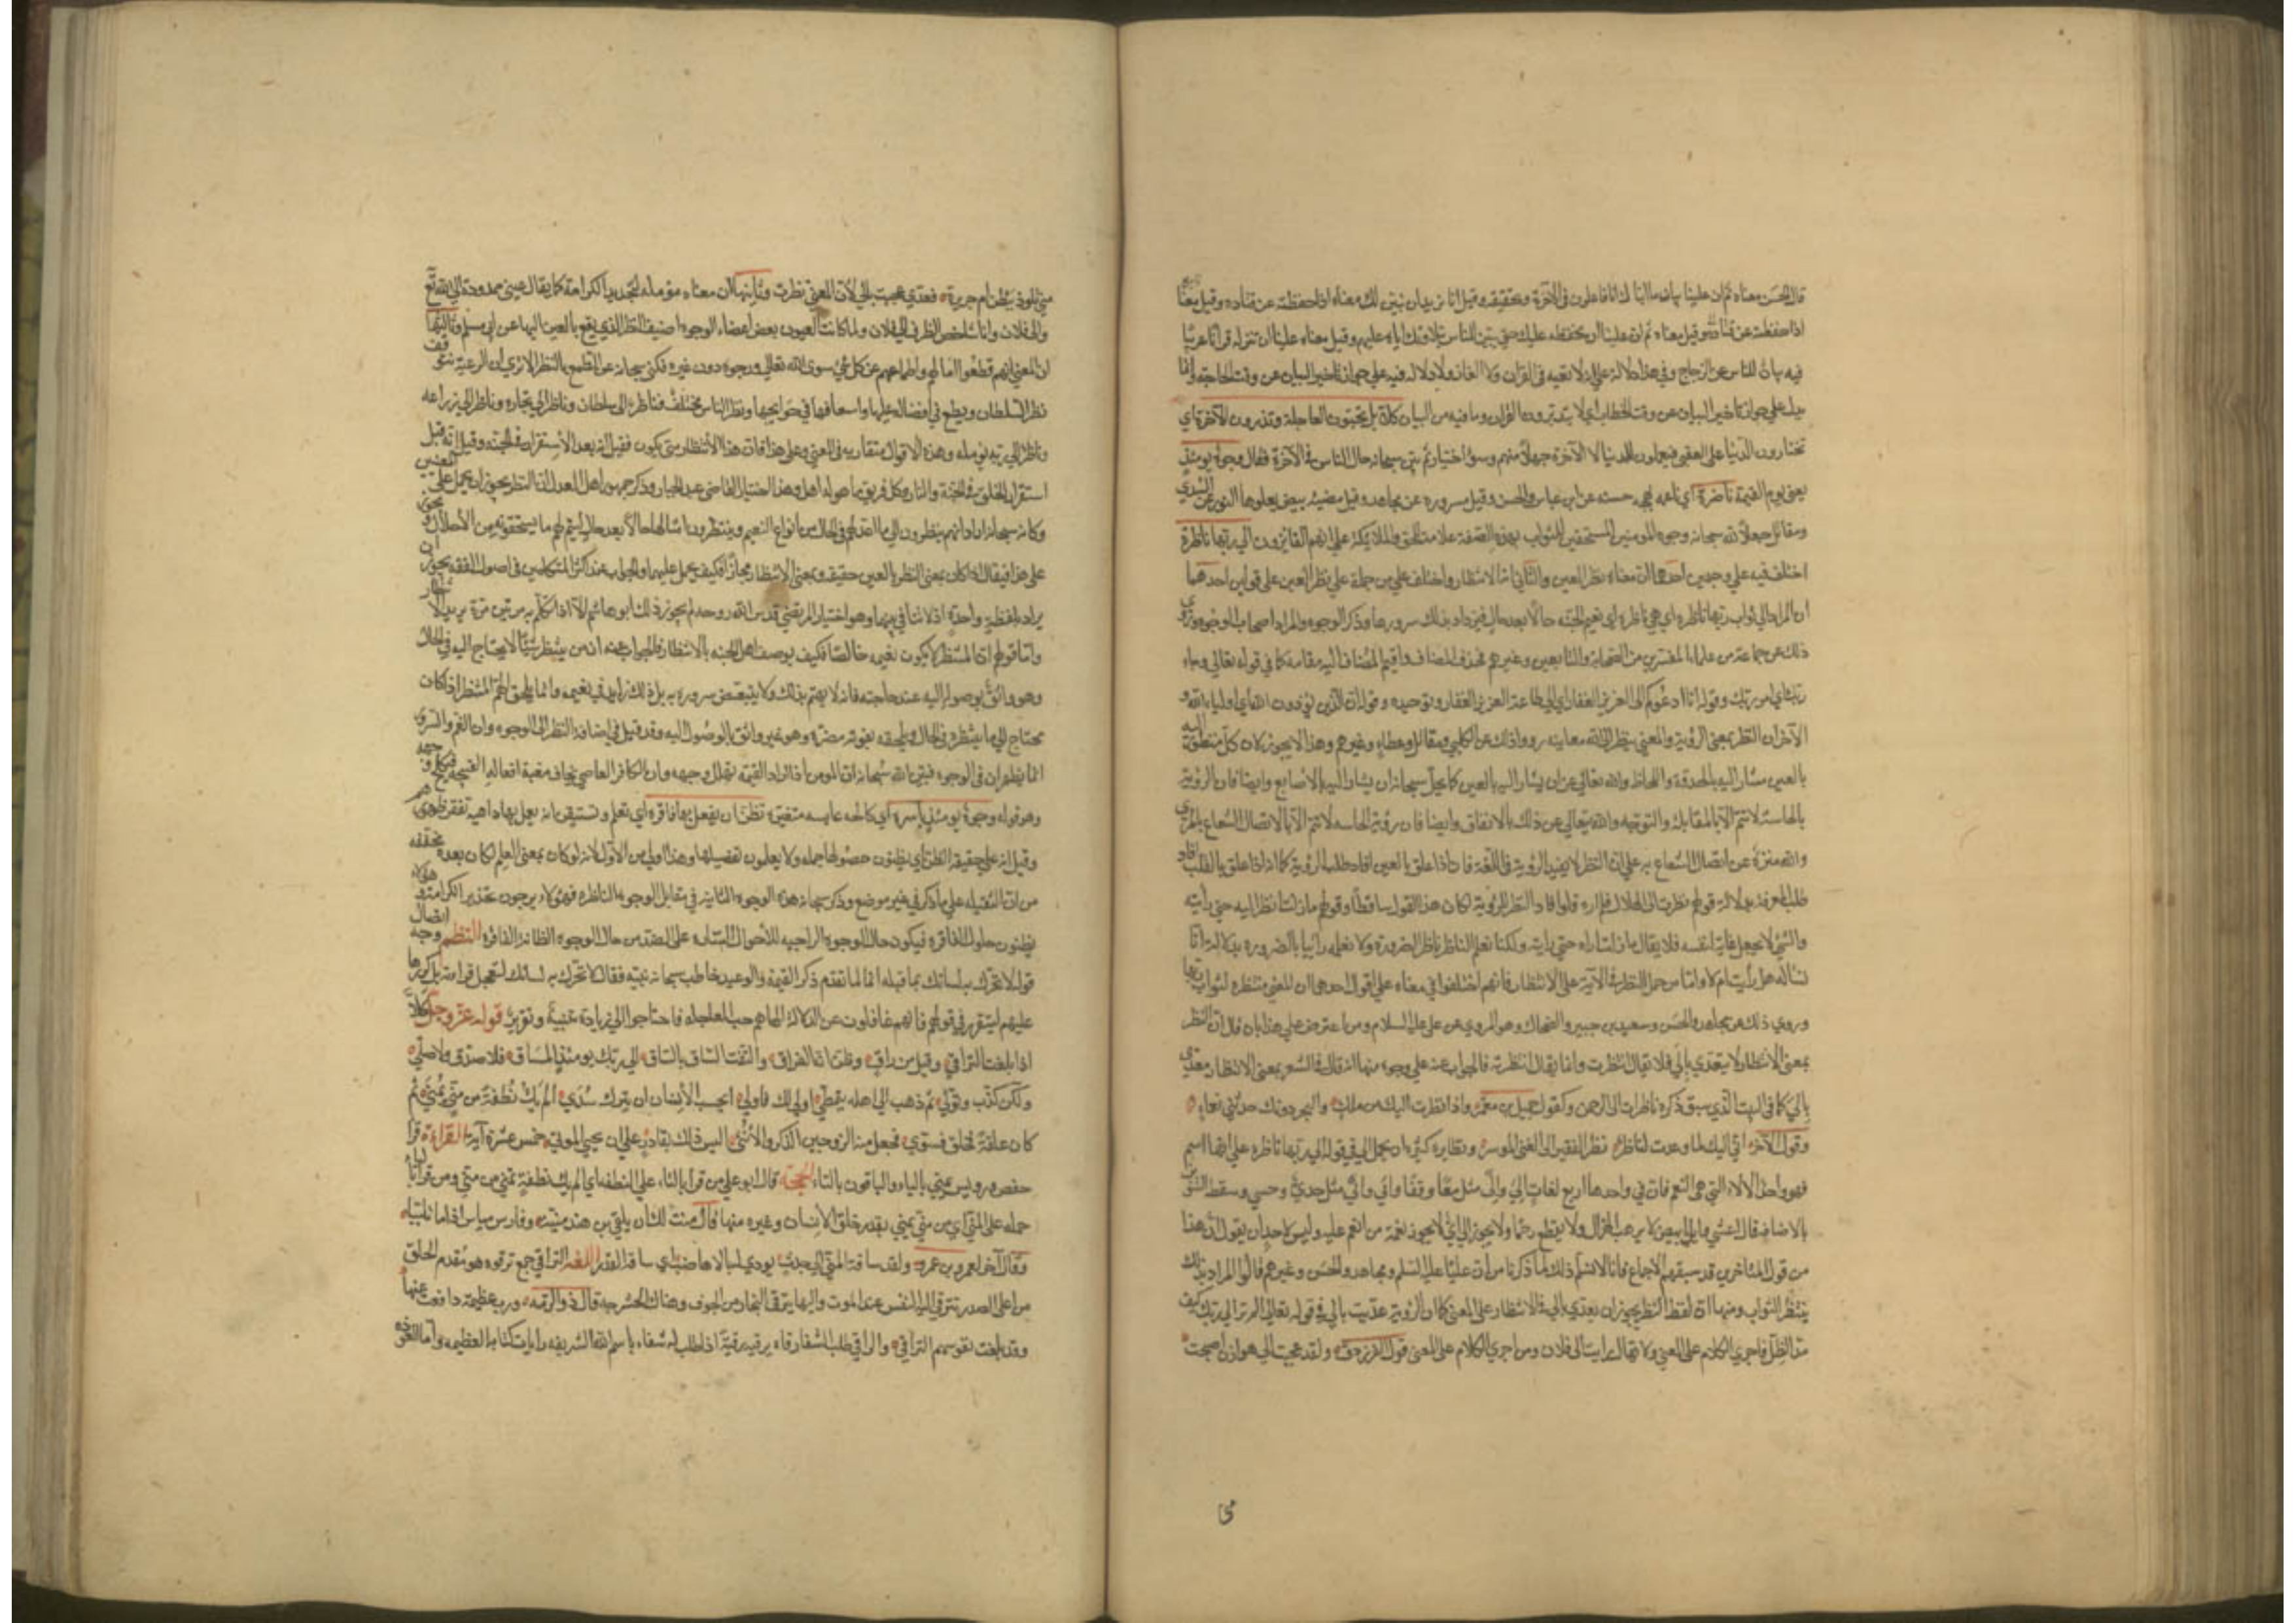 قال الحسن معناه ثم ان علينا بيان ما انبأناك انا فاعلون في الآخرة وتحقيقه وقيل انا نريد ان نبين لك معناه اذا حفظته عن قتاده وقيل معنا
اذا حفظته عن قتادة وقيل معناه ثم ان علينا ان نحفظه عليك حتى تبين للناس بتلاوتك اياه عليهم وقيل معناه علينا ان ننزله قرآنا عربيا
فيه بيان للناس عن الزجاج وفي هذا دلالة على انه لا تعمية في القرآن ولا الغاز ولا دلالة فيه على جواز تاخير البيان عن وقت الحاجة وانما
يدل على جواز تاخير البيان عن وقت الخطاب اي لا يتدبرون القرآن وما فيه من البيان كلا بل تحبون العاجلة وتذرون الآخرة اي
تختارون الدنيا على العقبى فيعملون للدنيا لا الآخرة جهلا منهم وسوء اختيار ثم بين سبحانه حال الناس في الآخرة فقال وجوه يومئذ
يعني يوم القيمة ناضرة اي ناعمه بهجه حسنه عن ابن عباس والحسن وقيل مسروره عن مجاهد وقيل مضيئه بيض يعلوها النور عن السدي
ومقاتل جعل الله سبحانه وجوه المومنين المستحقين للثواب بهذه الصفة علامة للخلق والملايكة على انهم الفايزون الى ربها ناظرة
اختلف فيه على وجهين احدهما ان معناه نظر العين والثاني انه الانتظار واختلف على من حمله على نظر العين على قولين احدهما
ان المراد الى ثواب ربها ناظره اي هي ناظره الى نعيم الجنه حالا بعد حال فيزداد بذلك سرورها وذكر الوجوه والمراد اصحاب الوجوه وروي
ذلك عن جماعة من علماء المفسرين من الصحابة والتابعين وغيرهم فحذف المضاف واقيم المضاف اليه مقامه كما في قوله تعالى وجاء
ربك اي امر ربك وقوله انا ادعوكم الى العزيز الغفار اي الى طاعة العزيز الغفار وتوحيده وقوله ان الذين يؤذون الله اي اولياء الله و
الآخر ان النظر بمعنى الرؤية والمعنى ينظر الى الله معاينه رووا ذلك عن الكلبي ومقاتل وعطاء وغيرهم وهذا لا يجوز لان كل منظور اليه
بالعين مشار اليه بالحدقة واللحاظ والله تعالى عن ان يشار اليه بالعين كما يجل سبحانه ان يشار اليه بالاصابع وايضا فان الرؤية
بالحاسة لا تتم الا بالمقابلة والتوجه والله يتعالى عن ذلك بالاتفاق وايضا فان رؤية الحاسه لا تتم الا بالاتصال الشعاع بالمرئ
والله منزه عن اتصال الشعاع به على ان النظر لا يفيد الروية في اللغة فانه اذا علق بالعين افاد طلب الرؤية كما انه اذا علق بالقلب افاد
طلب المعرفة بدلالة قولهم نظرت الى الهلال فلم اره فلو افاد النظر الرؤية لكان هذا القول ساقطا وقولهم ما زلت انظر اليه حتى رأيته
والشئ لا يجعل غاية لنفسه فلا يقال ما زلت اراه حتى رأيته ولكنا نعلم الناظر ناظرا بالضرورة ولا نعلمه رائيا بالضروره بدلالة انا
نساله هل رأيت ام لا واما من حمل النظر في الآية على الانتظار فانهم اختلفوا في معناه على اقوال احدها ان المعنى منتظره لثواب ربها
وروي ذلك عن مجاهد والحسن وسعيد بن جبير والضحاك وهو المروي عن علي عليه السلام ومن اعترض على هذا بان قال ان النظر
بمعنى الانتظار لا يتعدى بالى فلا يقال انتظرت وانما يقال انتظرته فالجواب عنه على وجوه منها انه قد قال في الشعر بمعنى الانتظار معدي
بالى كما في البيت الذي سبق ذكره ناظرات الى الرحمن وكقول جميل بن معمر واذا نظرت اليك من ملك والبحر دونك حدثني نعماء
وقول الآخر اني اليك لما وعدت لناظر نظر الفقير الى الغني الموسر ونظايره كثيره ان يحمل الى في قوله الى ربها ناظره على انها اسم
فهو واحد الآلاء التي هي النعم فان في واحدها اربع لغات الى والى مثل معا وقفا والي والي مثل جدي وحسي وسقط التنوين
بالاضافة قال اعشى وايل ابيض لا يرهب الهزال ولا يقطع رحما ولا يخون الى اي لا يخون نعمة من انعم عليه وليس لاحد ان يقول ان هذا
من قول المتاخرين قد سبقهم الاجماع فانا لا نسلم ذلك لما ذكرنا من ان عليا عليه السلم ومجاهد والحسن وغيرهم قالوا المراد بذلك
ينتظر الثواب ومنها ان لفظ النظر يجوز ان يعدي بالى في الانتظار على المعنى كما ان الرؤية عديت بالى في قوله تعالى الم تر الى ربك كيف
مد الظل فاجري الكلام على المعنى ولا يقال رايت الى فلان ومن اجري الكلام على المعنى قول الفرزدق ولقد عجبت الى هوازن اصبحت
مني تلوذ ببطن ام جرير فعدي عجبت بالى لان المعنى نظرت وثانيها ان معناه مؤمله لتجديد الكرامة كما يقال عيني ممدودة الى الله تع
والى فلان وانا شاخص النظر الى فلان ولما كانت العيون بعض اعضاء الوجوه اضيف النظر الذي يقع بالعين اليها عن ابي مسلم وثالثها
ان المعنى انهم قطعوا آمالهم واطماعهم عن كل شئ سوى الله تعالى ورجوه دون غيره فكنى سبحانه عن الطمع بالنظر الا ترى ان الرعية تتوقف
نظر السلطان ويطمع في افضاله عليها واسعافها في حوايجها ونظر الناس مختلف فناظر الى سلطان وناظر الى تجاره وناظر الى زراعه
وناظر الى ربه يومله وهذه الاقوال متقاربه في المعنى وعلى هذا فان هذا الانتظار متى يكون فقيل انه بعد الاستقرار في الجنة وقيل انه قبل
استقرار الخلق في الجنة والنار وكل فريق ما هو له اهل وهذا اختيار القاضي عبد الجبار وذكر جمهور اهل العدل ان النظر يجوز ان يحمل على المعنيين
وكانه سبحانه اراد انهم ينظرون الى ما اعد لهم في الحال من انواع النعيم وينتظرون امثالها حالا بعد حال ليتم لهم ما يستحقونه من الاجلال و
على هذا فيقال اذا كان بمعنى النظر بالعين حقيقه وبمعنى الانتظار مجازا فكيف يحمل عليهما والجواب عند اكثر المتكلمين في اصول الفقه يجوز ان
يراد بلفظة واحدة اذ لا تنافي بينهما وهو اختيار المرتضى قدس الله روحه ولم يجوز ذلك ابو هاشم الا اذا تكلم به مرتين مرة يريد
واما قولهم ان المنتظر لا يكون نعيمه خالصا فكيف يوصف اهل الجنه بالانتظار فالجواب عنه ان من ينتظر شيئا لا يحتاج اليه في الحال
وهو واثق بوصوله اليه عند حاجته فانه لا يهتم بذلك ولا يتنقص سروره به بل ذلك زايد في نعيمه وانما يلحق الهم المنتظر اذا كان
محتاج الى ما ينتظره في الحال ويلحقه بفوته مضرة وهو غير واثق بالوصول اليه وقد قيل في اضافة النظر الى الوجوه وان الغم والسرور
انما يظهران في الوجوه فبين الله سبحانه ان المومن اذا اراد القيمة تهلل وجهه وان الكافر العاصي يخاف مغبة افعاله القبيحة
وهو قوله وجوه يومئذ باسرة اي كالحه عابسه متغيرة تظن ان يفعل بها فاقره اي تعلم وتستيقن انه يعمل بها داهية تفقر ظهورهم
وقيل انه على حقيقة الظن اي يظنون حصولها جمله ولا يعلمون تفصيلها وهذا اولى من الاول لانه لو كان بمعنى العلم لكان بعده محققه
من ان الثقيله على ما ذكر في غير موضع وذكر سبحانه هذه الوجوه الثانية في مقابل الوجوه الناظره فهؤلاء يرجون تجديد الكرامة وهولاء
يظنون حلول الفاقره فيكون حال الوجوه الراجيه للاحوال السارة على الضد من حال الوجوه الظانة الفاقره النظم وجه اتصال
قوله لا تحرك به لسانك بما قبله انه لما تقدم ذكر القيمة والوعيد خاطب سبحانه نبيه فقال لا تحرك به لسانك لتعجل قراءته بل كررها
عليهم ليتقرر في قلوبهم فانهم غافلون عن الادلة الهاهم حب العاجله فاحتاجوا الى زيادة تنبيه وتقرير قوله عز وجل كلا
اذا بلغت التراقي وقيل من راق وظن انه الفراق والتفت الساق بالساق الى ربك يومئذ المساق فلا صدق ولا صلى
ولكن كذب وتولى ثم ذهب الى اهله يتمطى اولى لك فاولى ايحسب الانسان ان يترك سدى الم يك نطفة من مني يمنى ثم
كان علقة فخلق فسوى فجعل منه الزوجين الذكر والانثى اليس ذلك بقادر على ان يحيي الموتى خمس عشرة آية القراءة قرأ
حفص ورويس يمنى بالياء والباقون بالتاء الحجة قال ابو علي من قرأ بالتاء على النطفة اي الم يك نطفة تمنى من مني ومن قرأ بالياء
حمله على المني اي من مني يمنى يقدر خلق الانسان وغيره منها قال منت لك ان يلقى بن هند منية وفارس مياس اذا ما تلببا
وقال آخر لعمرو بن عمرو ولقد ساقه المنى الى جدث يوزى له بالاهاضب اي ساقه القدر اللغة التراقي جمع ترقوه وهو مقدم الحلق
من اعلى الصدر تترقى اليه النفس عند الموت واليها يترقى البخار من الجوف وهناك الحشرجه قال ذو الرمه ورب عظيمة دافعت عنها
وقد بلغت نفوسهم التراقي والراقي طلب الشفا رقاه يرقيه رقية اذا طلب له شفاء باسم الله الشريفه وايات كتابه العظيمه واما العوذه
مني